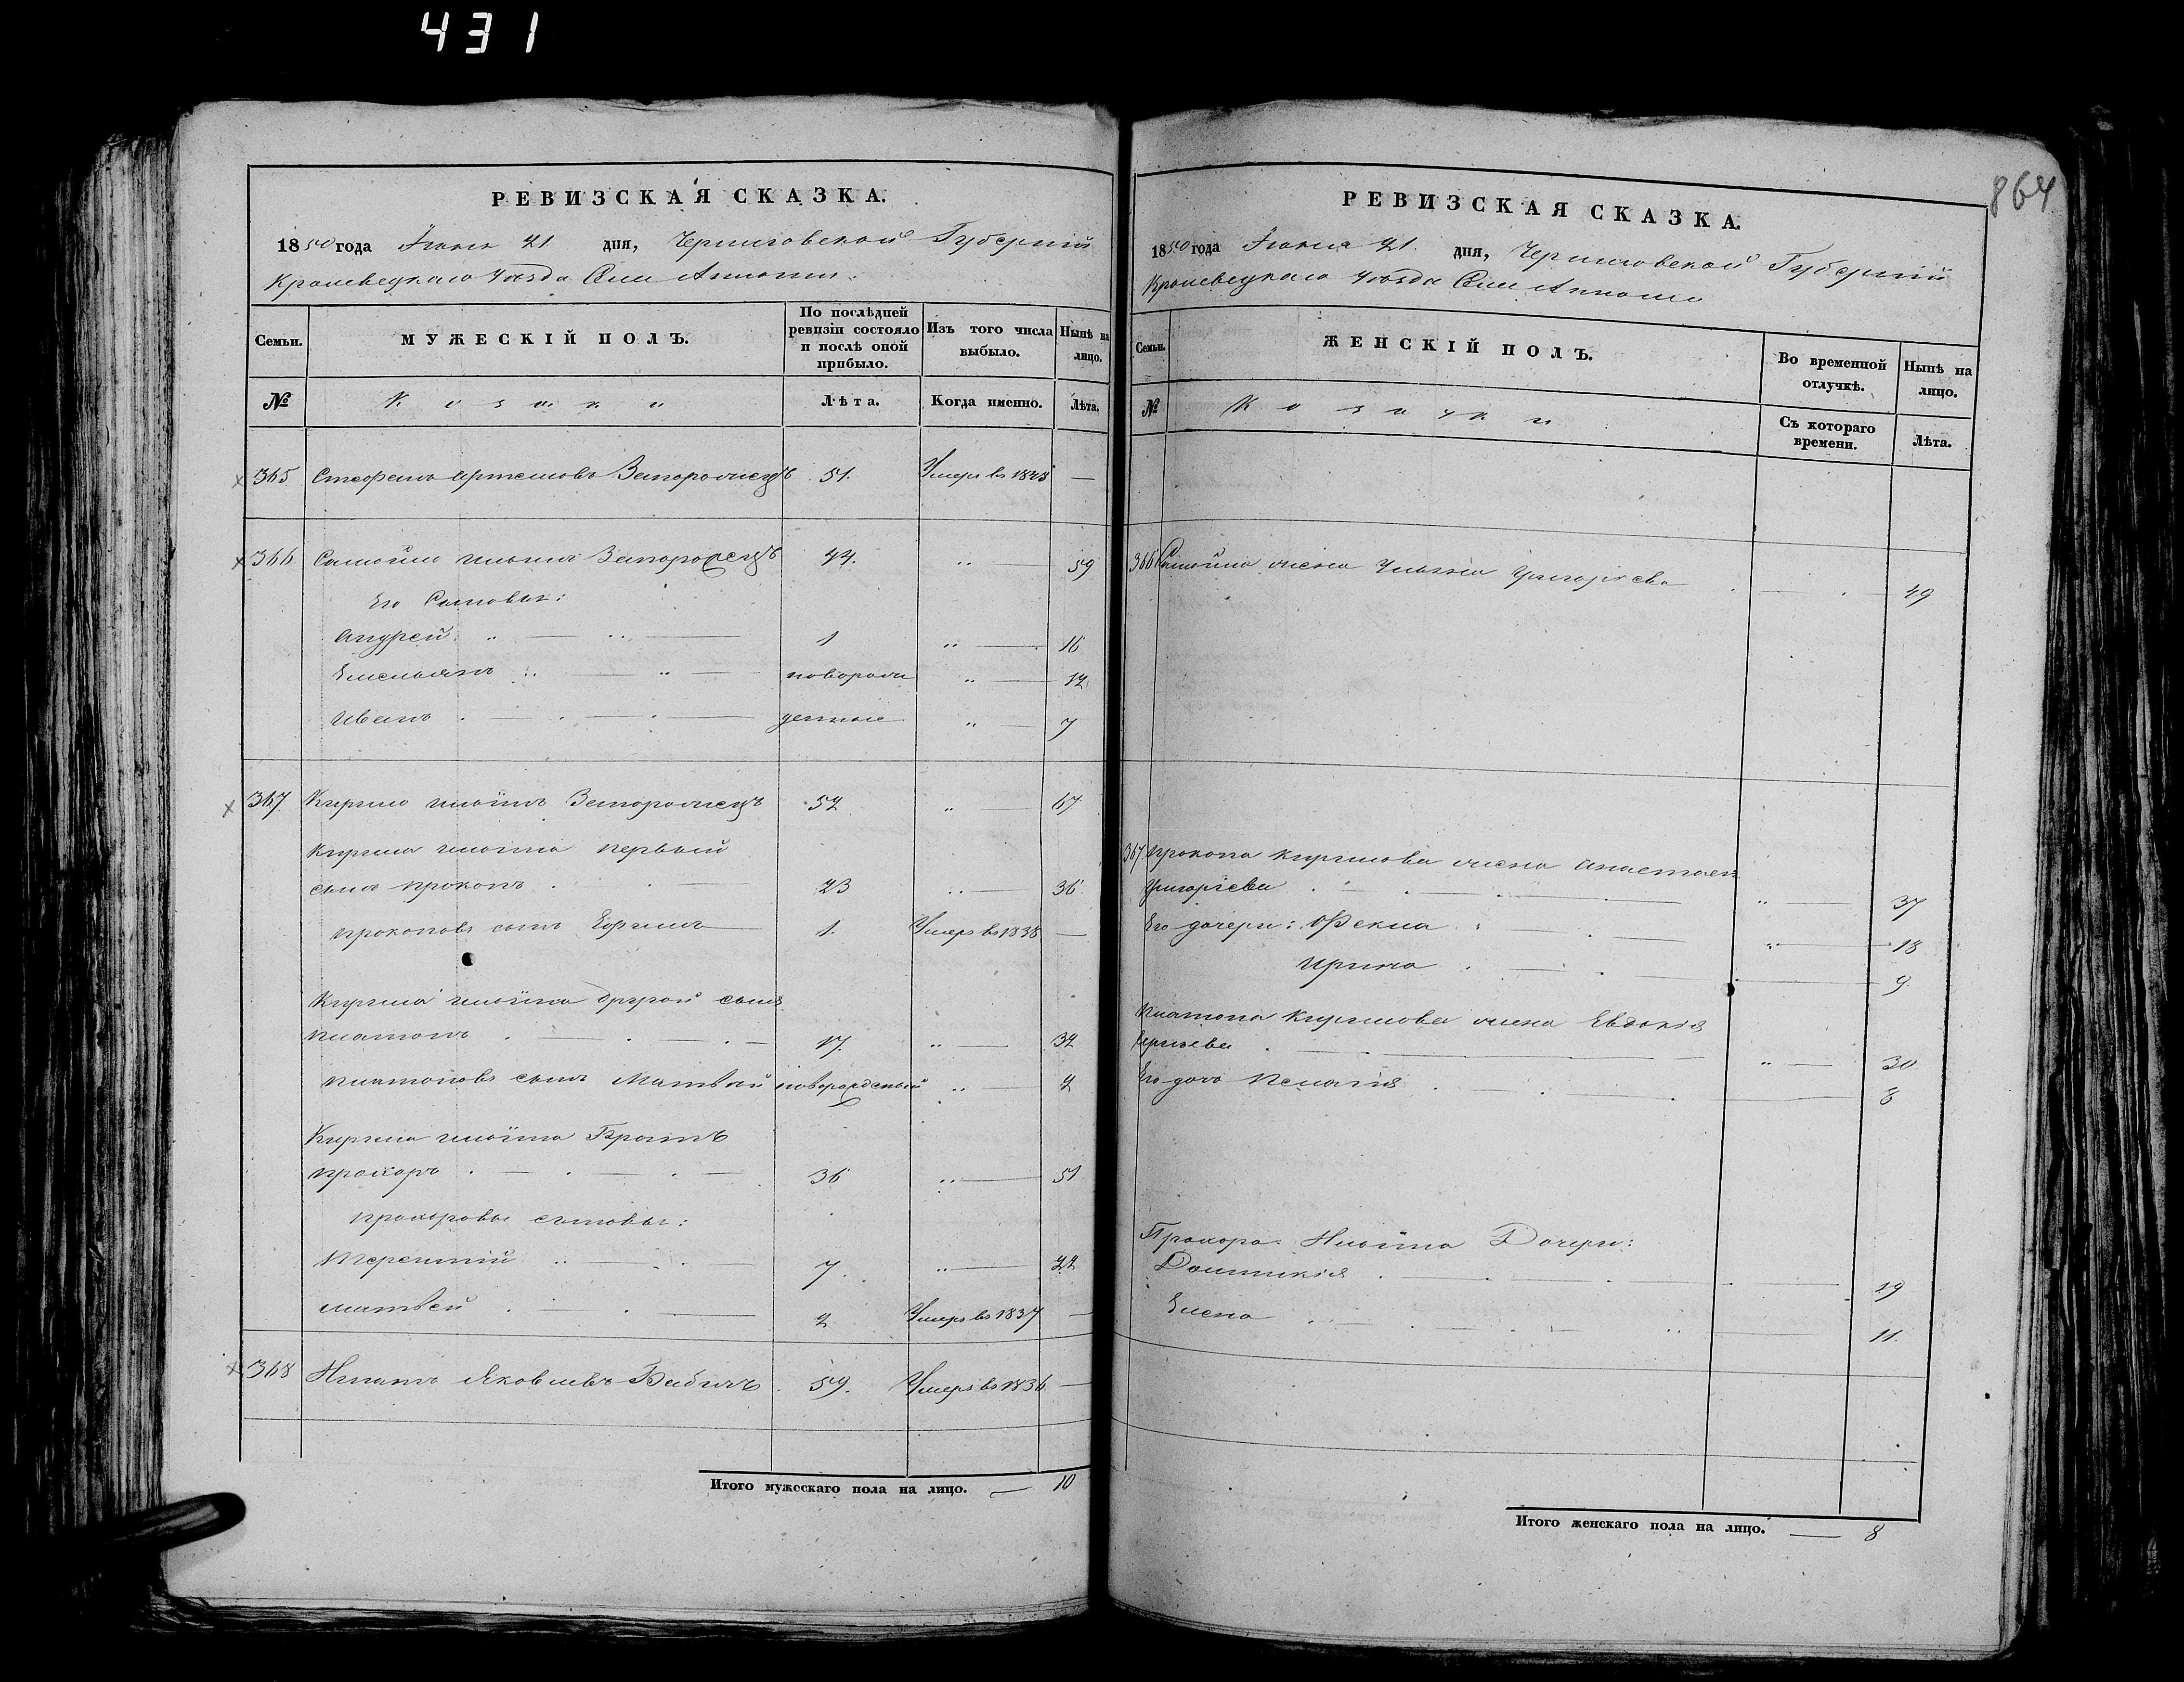 431
864
РЕВИЗСКАЯ СКАЗКА.
1850 года Июня 21 дня, Черниговской Губерніи
Кролевецкаго Уѣзда Села
Семьи. МУЖЕСКІЙ ПОЛЪ. По послѣдней ревизіи состояло и послѣ оной прибыло. Изъ того числа выбыло. Нынѣ на лицо.
№ Козаки Лѣта. Когда именно. Лѣта.
365 Стефанъ Артемовъ Запорожецъ 51. Умеръ въ —
366 Самойло Ильинъ Запорожецъ 44. „ — 59
Его Сыновья:
Андрей „ — „ — 1 „ — 16
Емельянъ „ — „ — новорож „ — 12
Иванъ . — . — . — денные „ — 7
367 Кирило Ильинъ Запорожецъ 52 „ — 67
Кирила Ильина первый
сынъ Прокопъ . . — 23 „ — 36
Прокоповъ сынъ Ефимъ — 1. Умеръ въ 1838 —
Кирила Ильина другой сынъ
Платонъ . — . — . — 17. „ — 32
Платоновъ сынъ Матвѣй новорожденный „ — 2
Кирила Ильина Братъ
Прохоръ . — . — . — 36 „ — 51
Прохоровы сыновья:
Терентій „ — . 7. „ — 22
Матвѣй . — . — 2 Умеръ въ 1837 —
368 Игнатъ Яковлевъ Бабичъ . 59. Умеръ въ 1836 —
Итого мужескаго пола на лицо. — 10
РЕВИЗСКАЯ СКАЗКА.
1850 года Июня 21. дня, Черниговской Губерніи
Кролевецкаго Уѣзда Села
Семьи. ЖЕНСКІЙ ПОЛЪ. Во временной отлучкѣ. Нынѣ на лицо.
№ Козачки Съ котораго времени. Лѣта.
366 Самойла жена Ульяна Григорьева . — . — 49
367. Прокопа Кирилова жена Анастасія
Григорьева . — . — . — „ — 37
Его дочери: Фекла . — . — „ — 18
Ирина . — . — 9
Платона Кирилова жена Евдокія
Сергѣева . — . — „ — 30
Его дочь Пелагія . — . — . — 8
Прохора Ильина Дочери:
Домникія . — . — . — . — 19
Елена . — . — . — „ — 11.
Итого женскаго пола на лицо. — 8